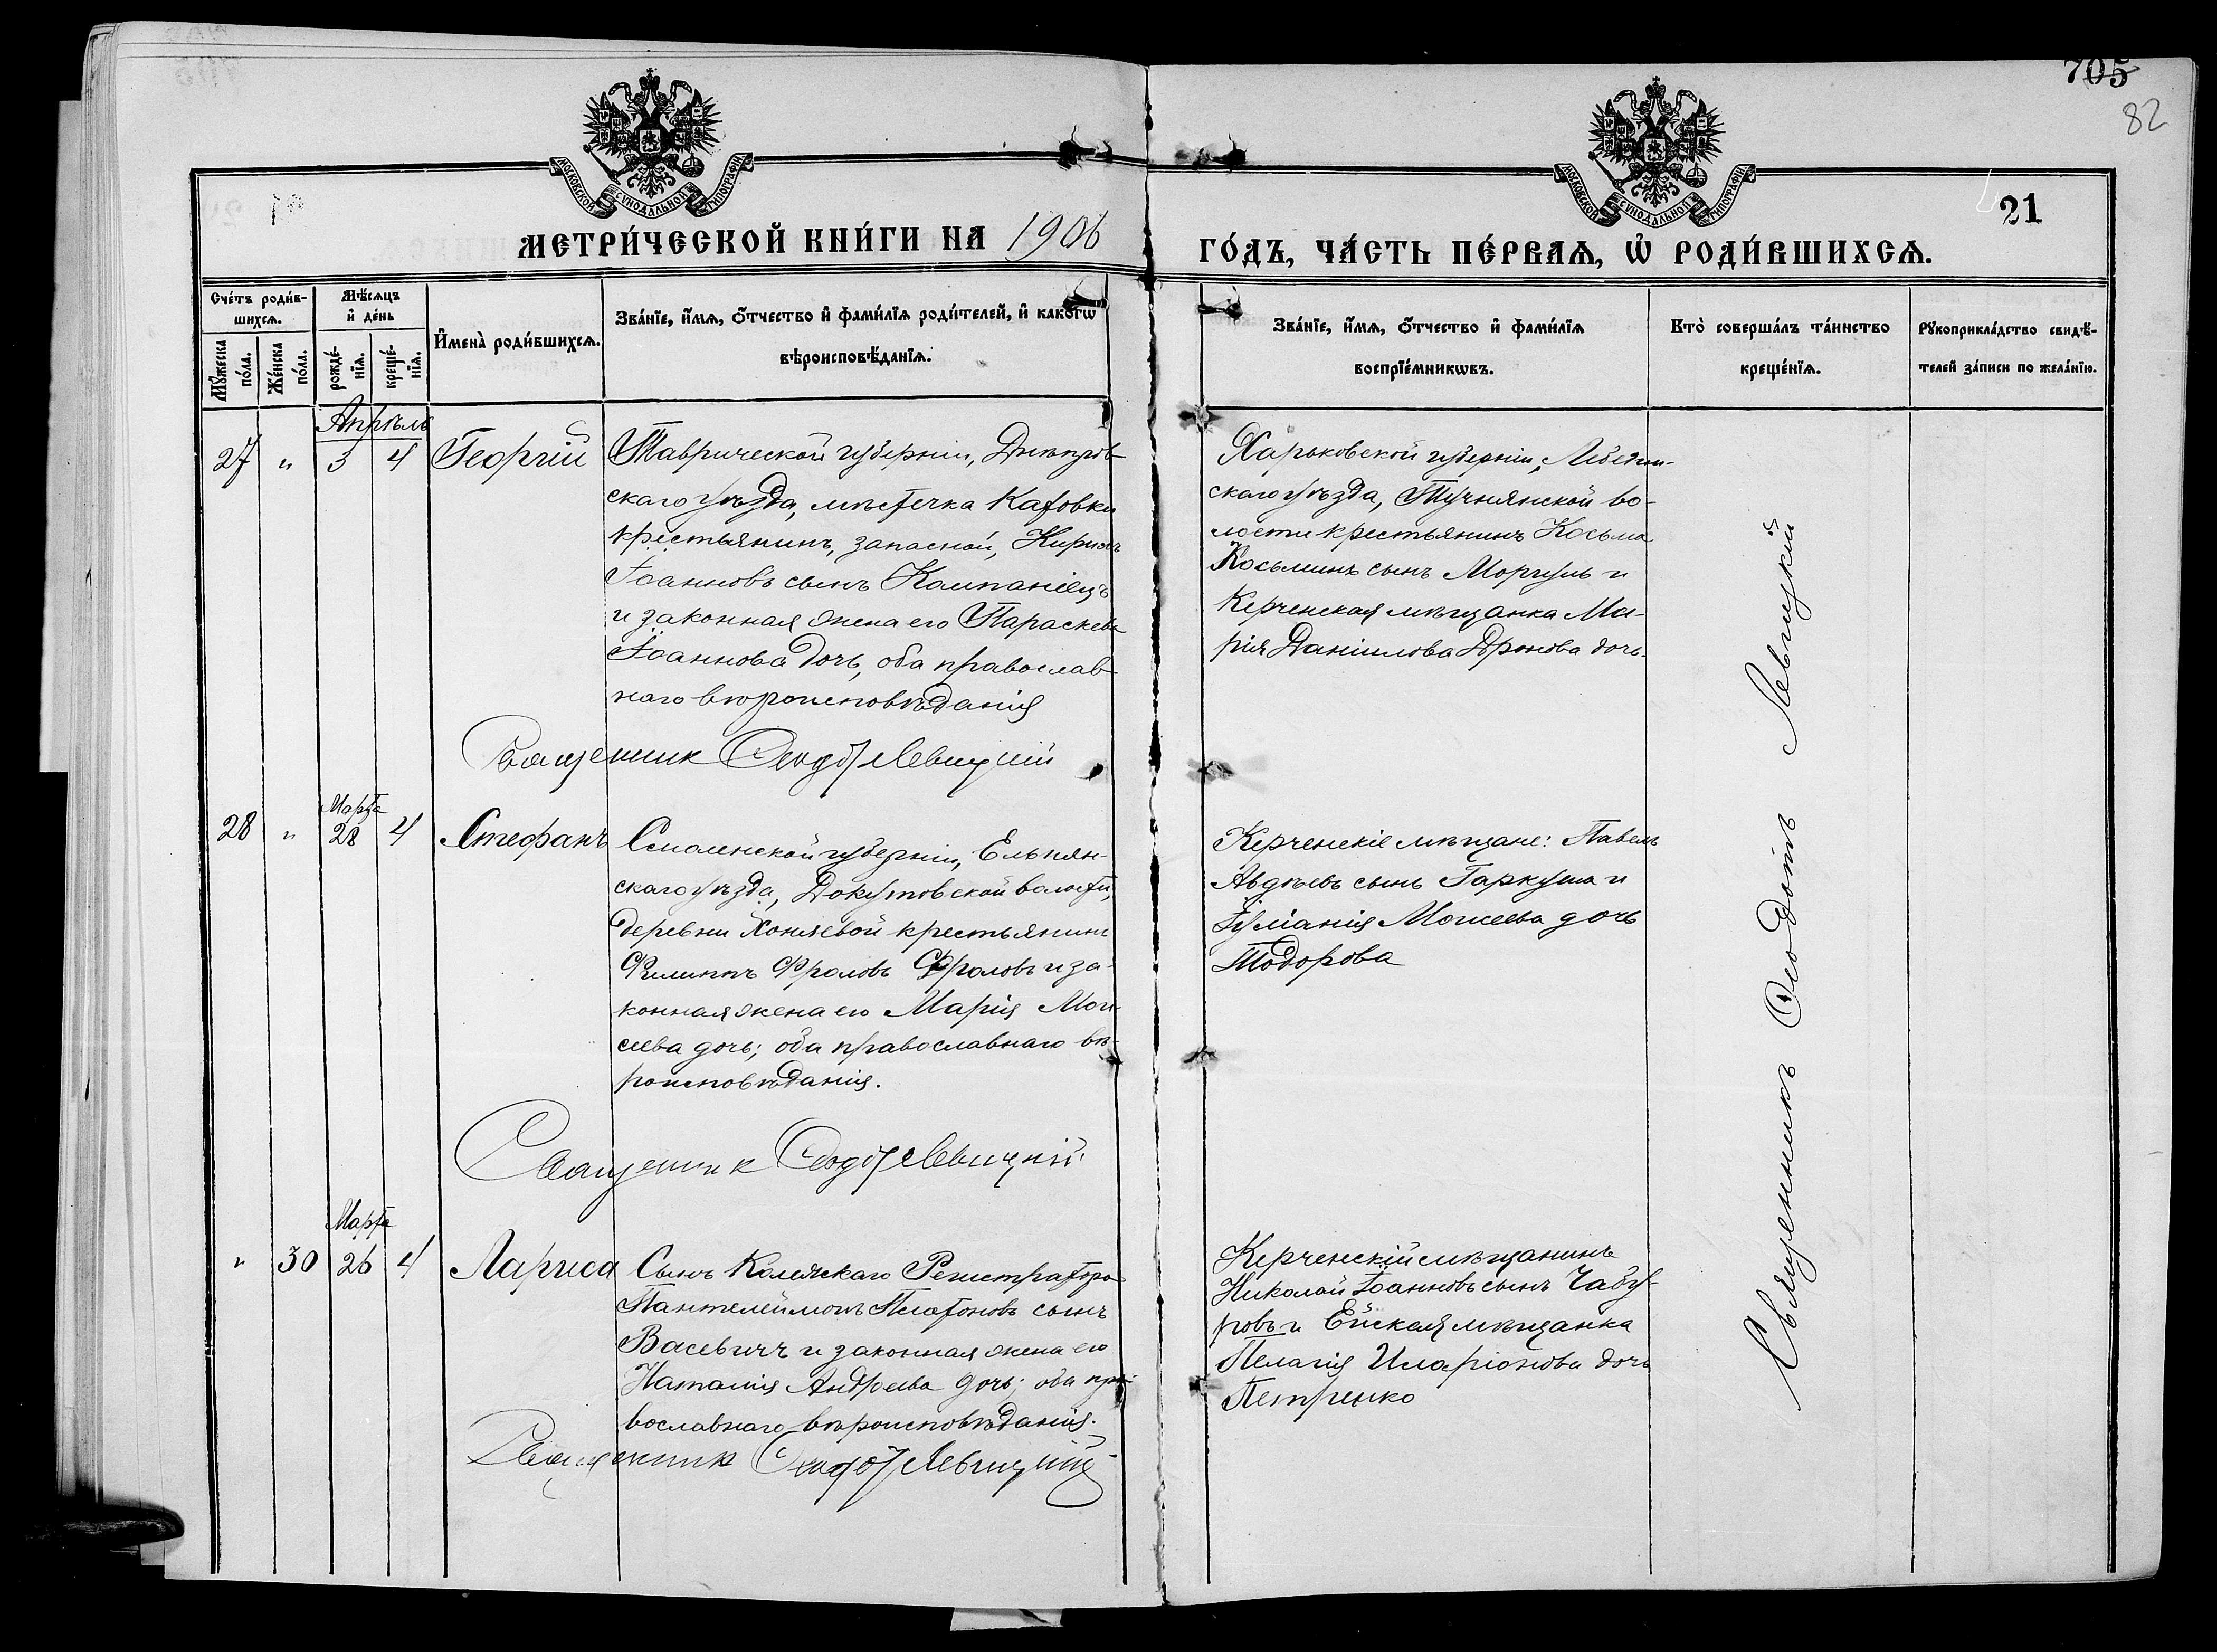 705
82
МОСКОВСКОЙ СѴНОДАЛЬНОЙ ТИПОГРАФІИ
МОСКОВСКОЙ СѴНОДАЛЬНОЙ ТИПОГРАФІИ
21
МЕТРИ́ЧЕСКОЙ КНИ́ГИ НА 1906
ГО́ДЪ, ЧА́СТЬ ПЕ́РВАѦ, Ѡ҆ РОДИ́ВШИХСѦ.
Сче́тъ роди́в-
шихсѧ.
Мѣ́сѧцъ
и҆ де́нь
Мꙋ́жеска по́ла.
Же́нска по́ла.
рожде́-нїѧ.
креще́-нїѧ.
И҆мена̀ роди́вшихсѧ.
Зва́нїе, и҆́мѧ, ѻ҆́тчество и҆ фами́лїѧ роди́телей, и҆ како́гѡ
вѣроисповѣ́данїѧ.
Зва́нїе, и҆́мѧ, ѻ҆́тчество и҆ фами́лїѧ
воспрїе́мникѡвъ.
Кто̀ соверша́лъ та́инство
креще́нїѧ.
Рꙋкоприкла́дство свидѣ́-
телей за́писи по жела́нїю.
Апрѣль
27 " 3 4 Георгій
Таврической губерніи, Днѣпров-
скаго уѣзда, мѣстечка Каховки
крестьянинъ, запасной, Кирилъ
Іоанновъ сынъ Компаніецъ
и законная жена его Параскева
Іоаннова дочь, оба православ-
наго вѣроисповѣданія
Священник Феодот Левицкий
Харьковской губерніи, Лебедин-
скаго уѣзда, Тучнянской во-
лости крестьянинъ Косьма
Косьминъ сынъ Моргунъ и
Керченская мѣщанка Ма-
рія Даніилова Дронова дочь.
Марта
28 " 28 4 Стефанъ
Смоленской губерніи, Ельнян-
скаго уѣзда, Докутовской волости,
деревни Хоняевой крестьянинъ
Филиппъ Фроловъ Фроловъ и за-
конная жена его Марія Мои-
сеева дочь; оба православнаго вѣ-
роисповѣданія.
Священник Феодот Левицкий
Керченскіе мѣщане: Павелъ
Авдѣевъ сынъ Гаркуша и
Іуліанія Моисеева дочь
Тодорова
Марта
" 30 26 4 Лариса
Сынъ Колежскаго Регистратора
Пантелеймонъ Платоновъ сынъ
Васевичъ и законная жена его
Наталія Андреева дочь; оба пра-
вославнаго вѣроисповѣданія.
Священник Феодот Левицкий
Керченскій мѣщанинъ
Николай Іоанновъ сынъ Чабу-
ровъ и Ейская мѣщанка
Пелагія Иларіонова дочь
Петренко
Священникъ Ѳеодотъ Левицкій